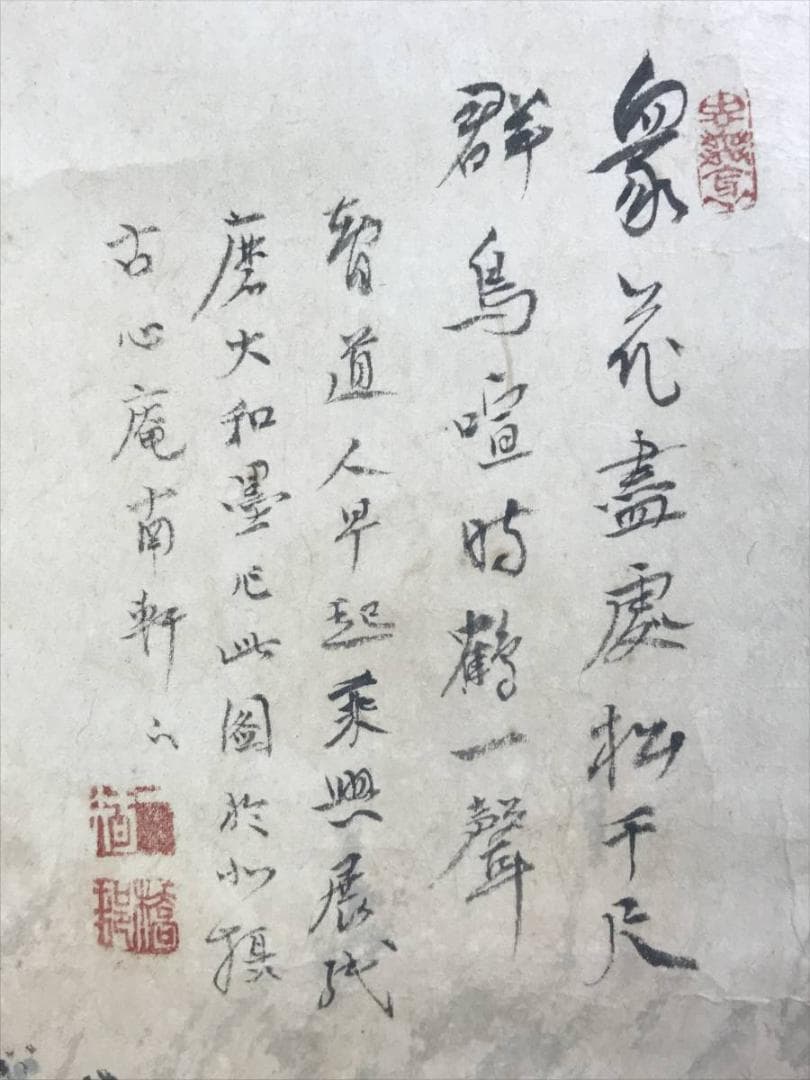 衆花盡處松千尺
群鳥喧時鶴一聲
智道人早起乘興展紙
磨大和墨作此图於北摂
古心庵南軒下